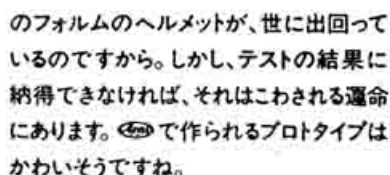 のフォルムのヘルメットが、世に出回って
いるのですから。しかし、テストの結果に
納得できなければ、それはこわされる運命
にあります。Arai で作られるプロトタイプは
かわいそうですね。